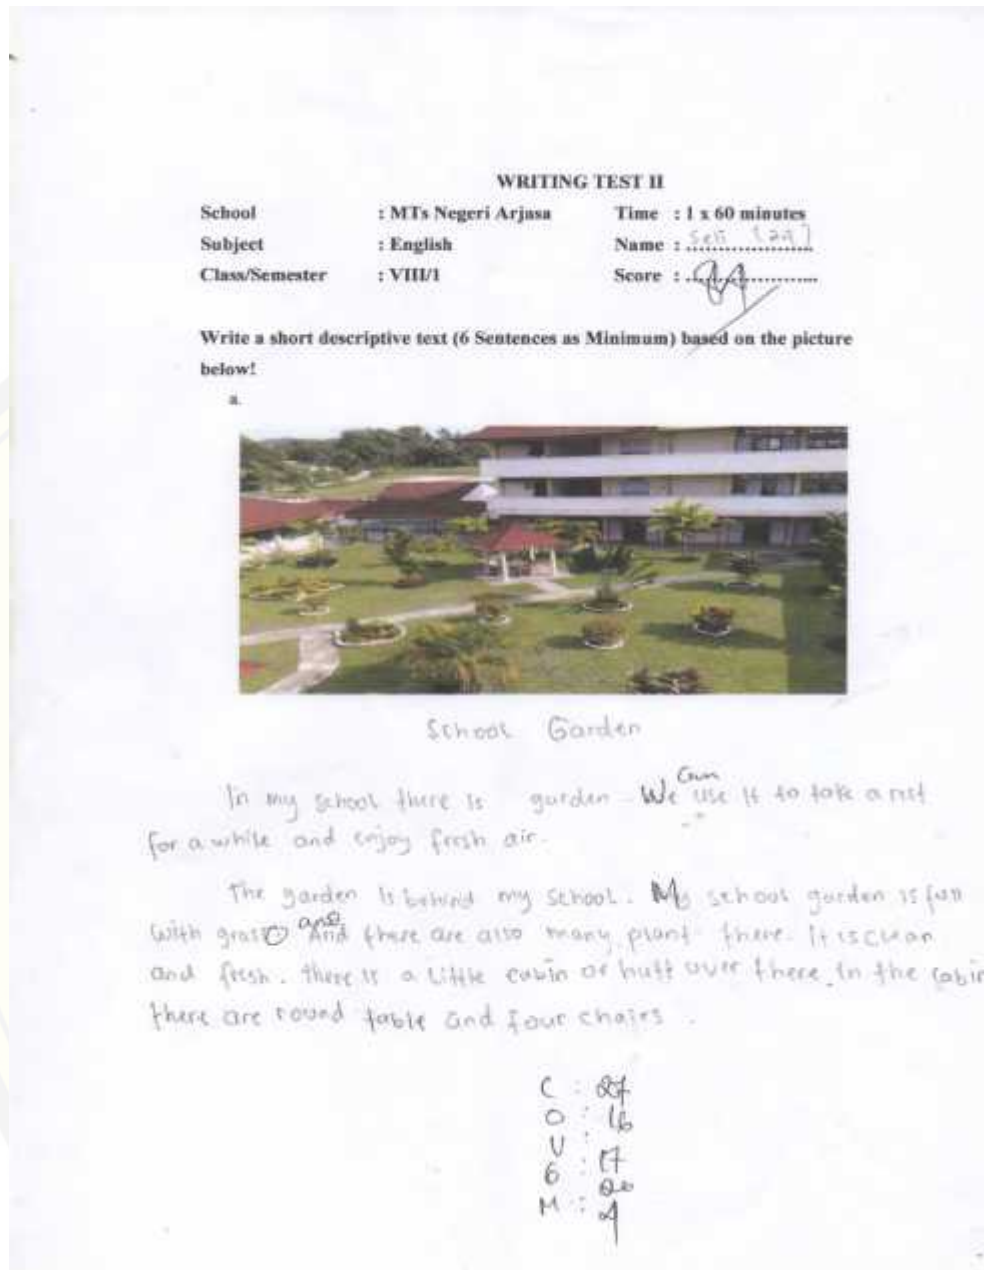 WRITING TEST II
School : MTs Negeri Arjasa Time : 1 x 60 minutes
Subject : English Name : Seli (29)
Class/Semester : VIII/1 Score :
Write a short descriptive text (6 Sentences as Minimum) based on the picture
below!
a.
School Garden
can
In my school there is garden. We use it to take a rest
for a while and enjoy fresh air.
The garden is behind my school. My school garden is full
with grass and And there are also many plant there. It is clean
and fresh. there is a little cabin or hutt over there. In the cabin
there are round table and four chairs.
C : 27
O : 16
V : 17
G : 20
M : 4